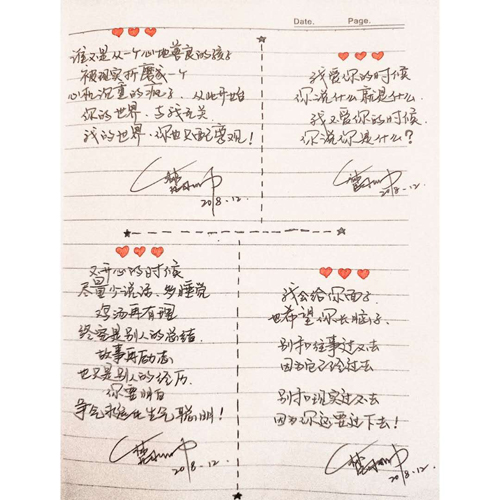 Date. Page.
谁不是从一个心地善良的孩子
被现实折磨成一个
心机沉重的疯子 从此开始
你的世界.与我无关
我的世界.你也不配参观!
2018.12.
我爱你的时候
你说什么就是什么.
我不爱你的时候.
你说你是什么?
2018.12.
不开心的时候
尽量少说话、多睡觉
鸡汤再有理
终究是别人的总结
故事再励志
也只是别人的经历
你要明白
争气永远比生气聪明!
2018.12.
我会给你面子.
也希望你长脑子.
别和往事过不去
因为它已经过去
别和现实过不去
因为你还要过下去!
2018.12.